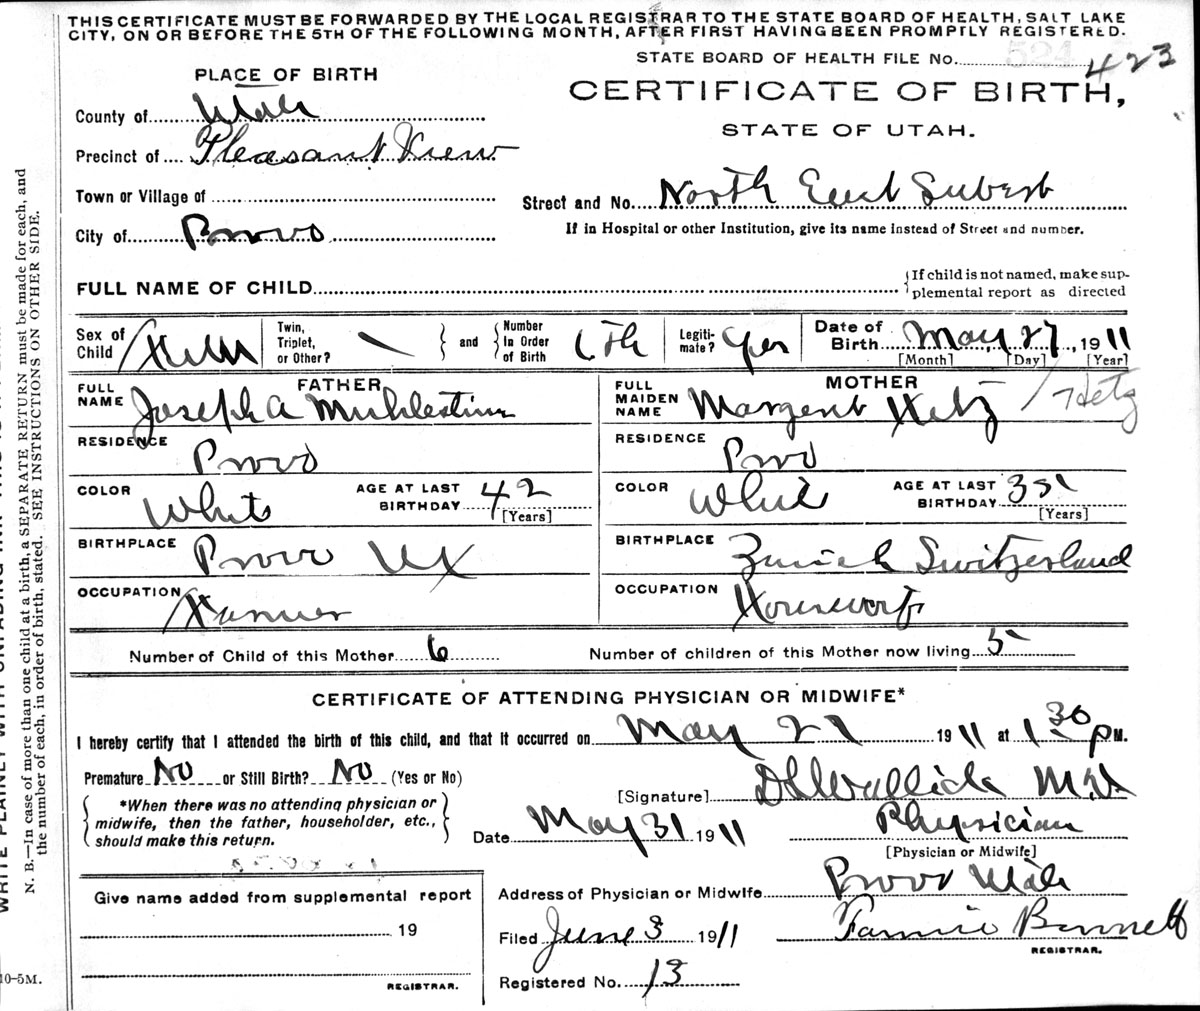 THIS CERTIFICATE MUST BE FORWARDED BY THE LOCAL REGISTRAR TO THE STATE BOARD OF HEALTH, SALT LAKE
CITY, ON OR BEFORE THE 5TH OF THE FOLLOWING MONTH, AFTER FIRST HAVING BEEN PROMPTLY REGISTERED.
STATE BOARD OF HEALTH FILE No. 524 423
PLACE OF BIRTH
CERTIFICATE OF BIRTH,
STATE OF UTAH.
County of Utah
Precinct of Pleasant View
Town or Village of
Street and No. North East Suburb
City of Provo
If in Hospital or other Institution, give its name instead of Street and number.
FULL NAME OF CHILD
If child is not named, make sup-
plemental report as directed
Sex of Child
Twin, Triplet, or Other?
and
Number In Order of Birth 6th
Legiti-mate? Yes
Date of Birth May 27, 1911
[Month] [Day] [Year]
FATHER
FULL NAME Joseph A Muhlestine
MOTHER
FULL MAIDEN NAME Margaret Hetz / Hetz
RESIDENCE Provo
RESIDENCE Provo
COLOR White AGE AT LAST BIRTHDAY 42 [Years]
COLOR White AGE AT LAST BIRTHDAY [Years]
BIRTHPLACE Provo Ut
BIRTHPLACE Zurich Switzerland
OCCUPATION Farmer
OCCUPATION Housework
Number of Child of this Mother 6
Number of children of this Mother now living 5
CERTIFICATE OF ATTENDING PHYSICIAN OR MIDWIFE*
I hereby certify that I attended the birth of this child, and that it occurred on May 27 1911 at 1 30 P M.
Premature No or Still Birth? No (Yes or No)
*When there was no attending physician or
midwife, then the father, householder, etc.,
should make this return.
[Signature] M.D.
Date May 31 1911 Physician
[Physician or Midwife]
Give name added from supplemental report
19
REGISTRAR.
Address of Physician or Midwife Provo Utah
Filed June 3 1911 Fannie Bennett
REGISTRAR.
Registered No. 13
N. B.—In case of more than one child at a birth, a SEPARATE RETURN must be made for each, and
the number of each, in order of birth, stated. SEE INSTRUCTIONS ON OTHER SIDE.
WRITE PLAINLY WITH UNFADING INK
10-5M.